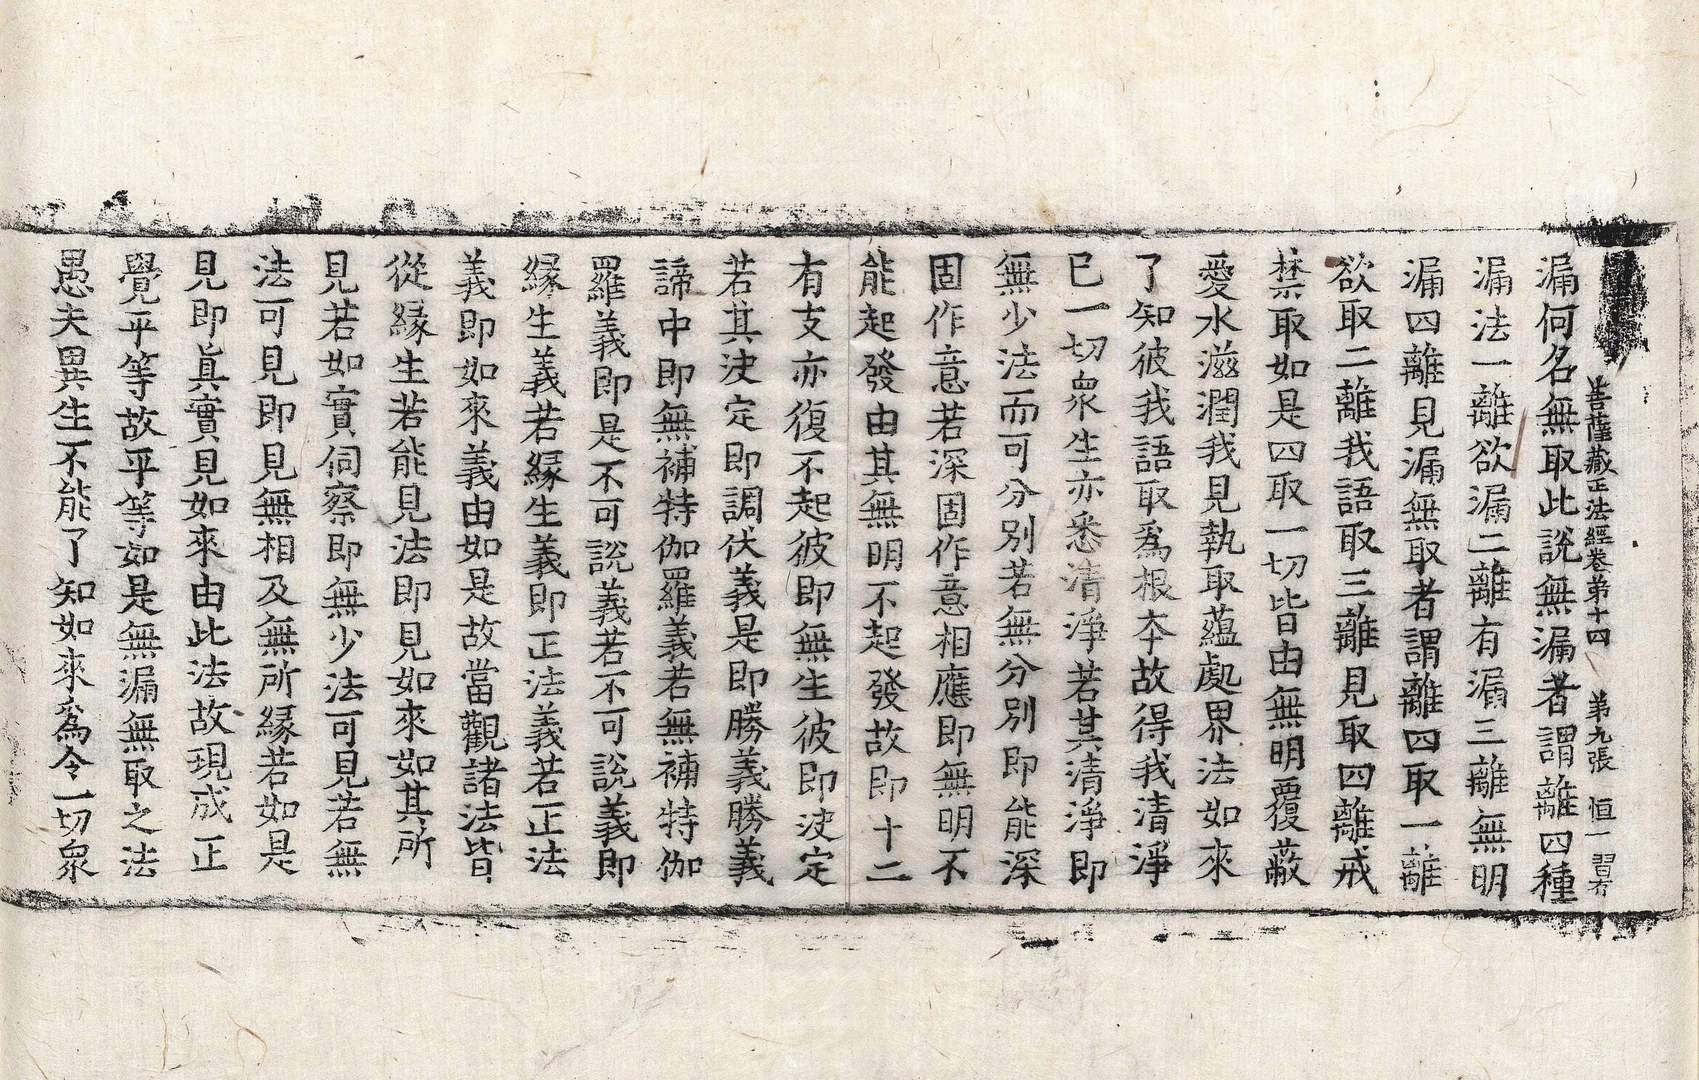 菩薩藏正法經卷弟十四 弟九張 恒一 習有
漏何名無取此說無漏者謂離四種
漏法一離欲漏二離有漏三離無明
漏四離見漏無取者謂離四取一離
欲取二離我語取三離見取四離戒
禁取如是四取一切皆由無明覆蔽
愛水滋潤我見執取蘊處界法如來
了知彼我語取爲根本故得我清淨
已一切衆生亦悉清淨若其清淨即
無少法而可分別若無分別即能深
固作意若深固作意相應即無明不
能起發由其無明不起發故即十二
有支亦復不起彼即無生彼即決定
若其決定即調伏義是即勝義勝義
諦中即無補特伽羅義若無補特伽
羅義即是不可說義若不可說義即
緣生義若緣生義即正法義若正法
義即如來義由如是故當觀諸法皆
從緣生若能見法即見如來如其所
見若如實伺察即無少法可見若無
法可見即見無相及無所緣若如是
見即眞實見如來由此法故現成正
覺平等故平等如是無漏無取之法
愚夫異生不能了知如來爲令一切衆